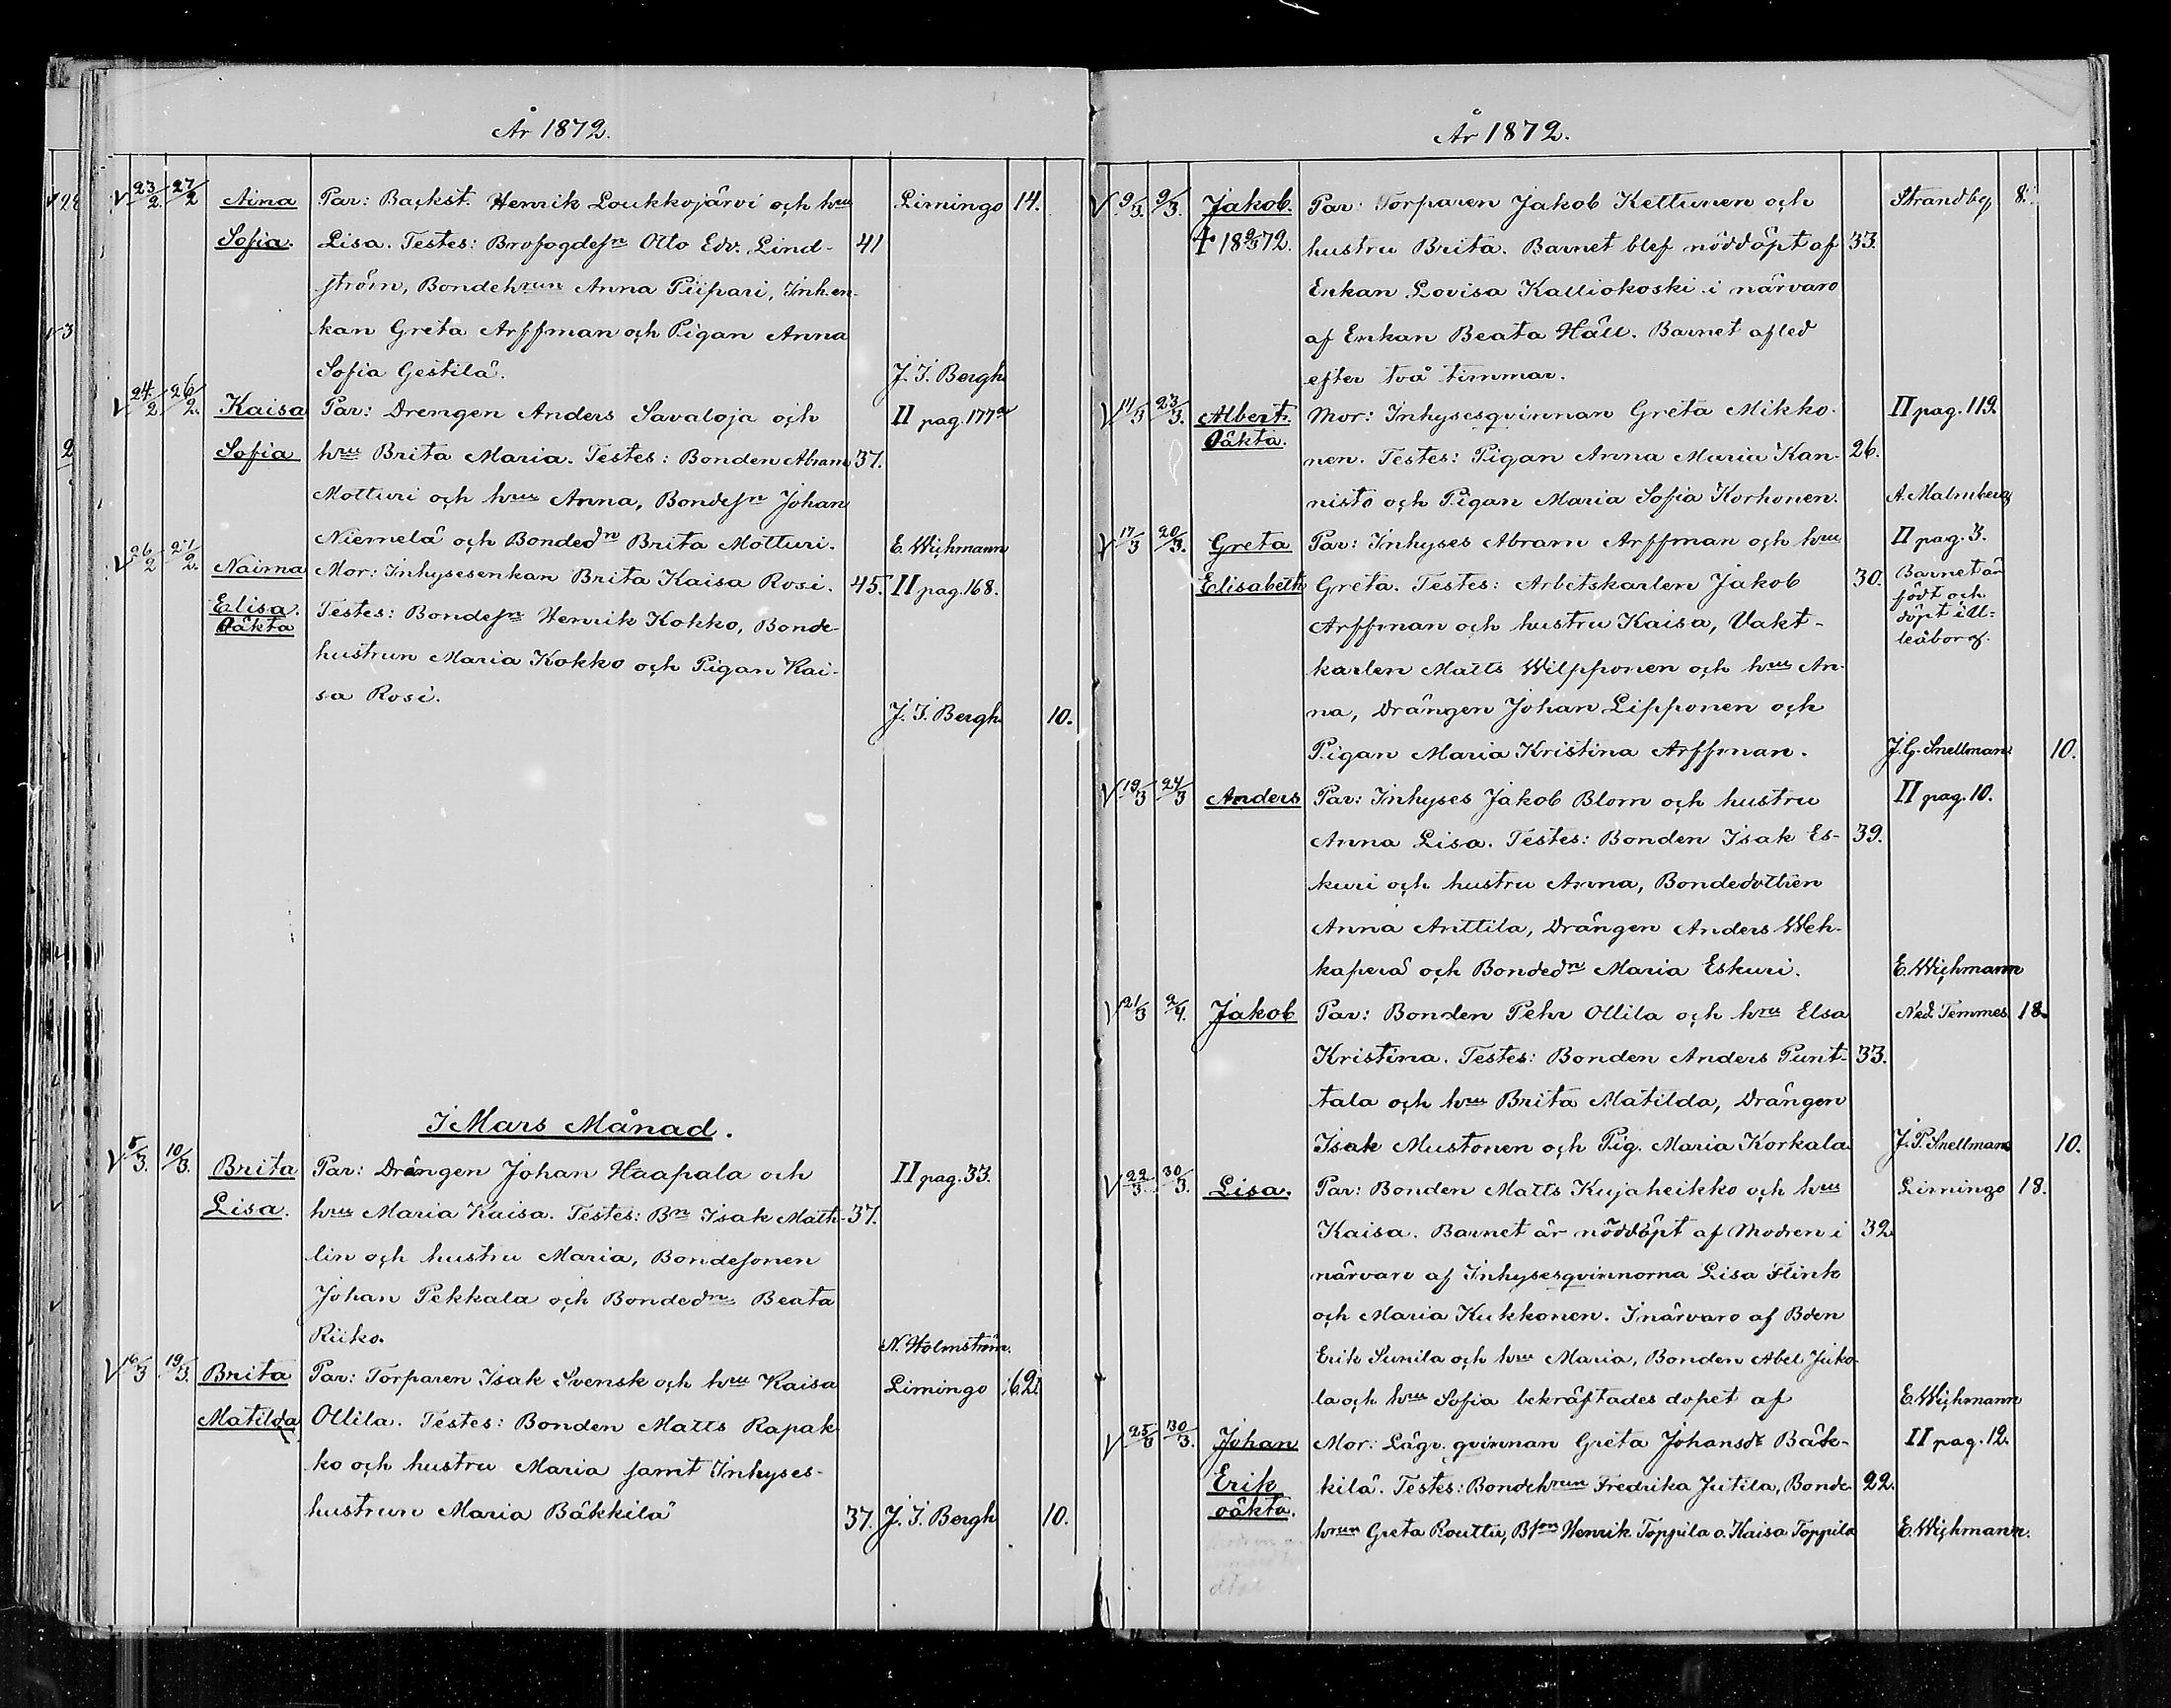 År 1872.
√ 23/2. 27/2 Aina Par: Backst. Henrik Loukkojärvi och hru Limingo 14.
Sofia. Lisa. Testes: Brofogdesn Otto Edv. Lind- 41
ström, Bondehrun Anna Piipari, Inh.en-
kan Greta Arffman och Pigan Anna
Sofia Gestilä. J. I. Bergh
√ 24/2 26/2. Kaisa Par: Drengen Anders Savaloja och II pag. 177
Sofia hru Brita Maria. Testes: Bonden Abram 37.
Motturi och hru Anna, Bondesn Johan
Niemelä och Bondedn Brita Motturi. E. Wichmann
√ 26/2 27/2. Naima Mor: Inhysesenkan Brita Kaisa Rosi. 45. II pag. 168.
Elisa. Testes: Bondesn Henrik Kokko, Bonde-
Oäkta
hustrun Maria Kokko och Pigan Kai-
sa Rosi.
J. I. Bergh. 10.
I Mars Månad.
√ 5/3. 10/3. Brita Par: Drängen Johan Haapala och II pag. 33.
Lisa. hru Maria Kaisa. Testes: Bn Isak Math- 37.
lin och hustru Maria, Bondesonen
Johan Pekkala och Bondedn Beata
Riiko. N. Holmström.
√ 19/3. Brita Par: Torparen Isak Svensk och hru Kaisa Limingo 62.
Matilda Ollila. Testes: Bonden Matts Rapak-
ko och hustru Maria samt Inhyses-
hustrun Maria Bäkkilä 37. J. I. Bergh 10.
År 1872.
√ 9/3. 9/3. Jakob. Par: Torparen Jakob Kettunen och Strandbg 8.
† 18 9/3 72. hustru Brita. Barnet blef nöddöpt af 33.
Enkan Lovisa Kalliokoski i närvaro
af Enkan Beata Häll. Barnet afled
efter två timmar.
√ 11/3 23/3. Albert. Mor: Inhysesqvinnan Greta Mikko- II pag. 119.
Oäkta. nen. Testes: Pigan Anna Maria Kan- 26.
nisto och Pigan Maria Sofia Korhonen. A. Malmberg
√ 17/3 20/3. Greta Par: Inhyses Abram Arffman och hru II pag. 3.
Elisabeth Greta. Testes: Arbetskarlen Jakob 30. Barnet är
födt och
Arffman och hustru Kaisa, Vakt- döpt i U-
leåborg.
karlen Matts Wilpponen och hru An-
na, Drängen Johan Lipponen och
Pigan Maria Kristina Arffman. J. G. Snellman 10.
√ 19/3 24/3 Anders Par: Inhyses Jakob Blom och hustru II pag. 10.
Anna Lisa. Testes: Bonden Isak Es- 39.
kuri och hustru Anna, Bondedottren
Anna Anttila, Drängen Anders Weh-
kaperä och Bondedn Maria Eskuri. E. Wichmann
√ 21/3 2/4. Jakob Par: Bonden Pehr Ollila och hru Elsa Ned. Temmes 18.
Kristina. Testes: Bonden Anders Punt- 33.
tala och hru Brita Matilda, Drängen
Isak Mustonen och Pig. Maria Korkala J. P. Snellman 10.
√ 22/3 30/3. Lisa. Par: Bonden Matts Kujaheikko och hru Limingo 18.
Kaisa. Barnet är nöddöpt af Modren i 32
närvaro af Inhysesqvinnorna Lisa Flink
och Maria Kukkonen. I närvaro af Bden
Erik Sunila och hru Maria, Bonden Abel Juko-
la och hru Sofia bekräftades dopet af E. Wichmann
√ 25/3 30/3. Johan Mor: Lägr. qvinnan Greta Johansdr Bäk- II pag. 12.
Erik kilä. Testes: Bondehrun Fredrika Jutila, Bonde 22.
oäkta.
hrun Greta Routtu, Bson Henrik Toppila o. Kaisa Toppila E. Wichmann.